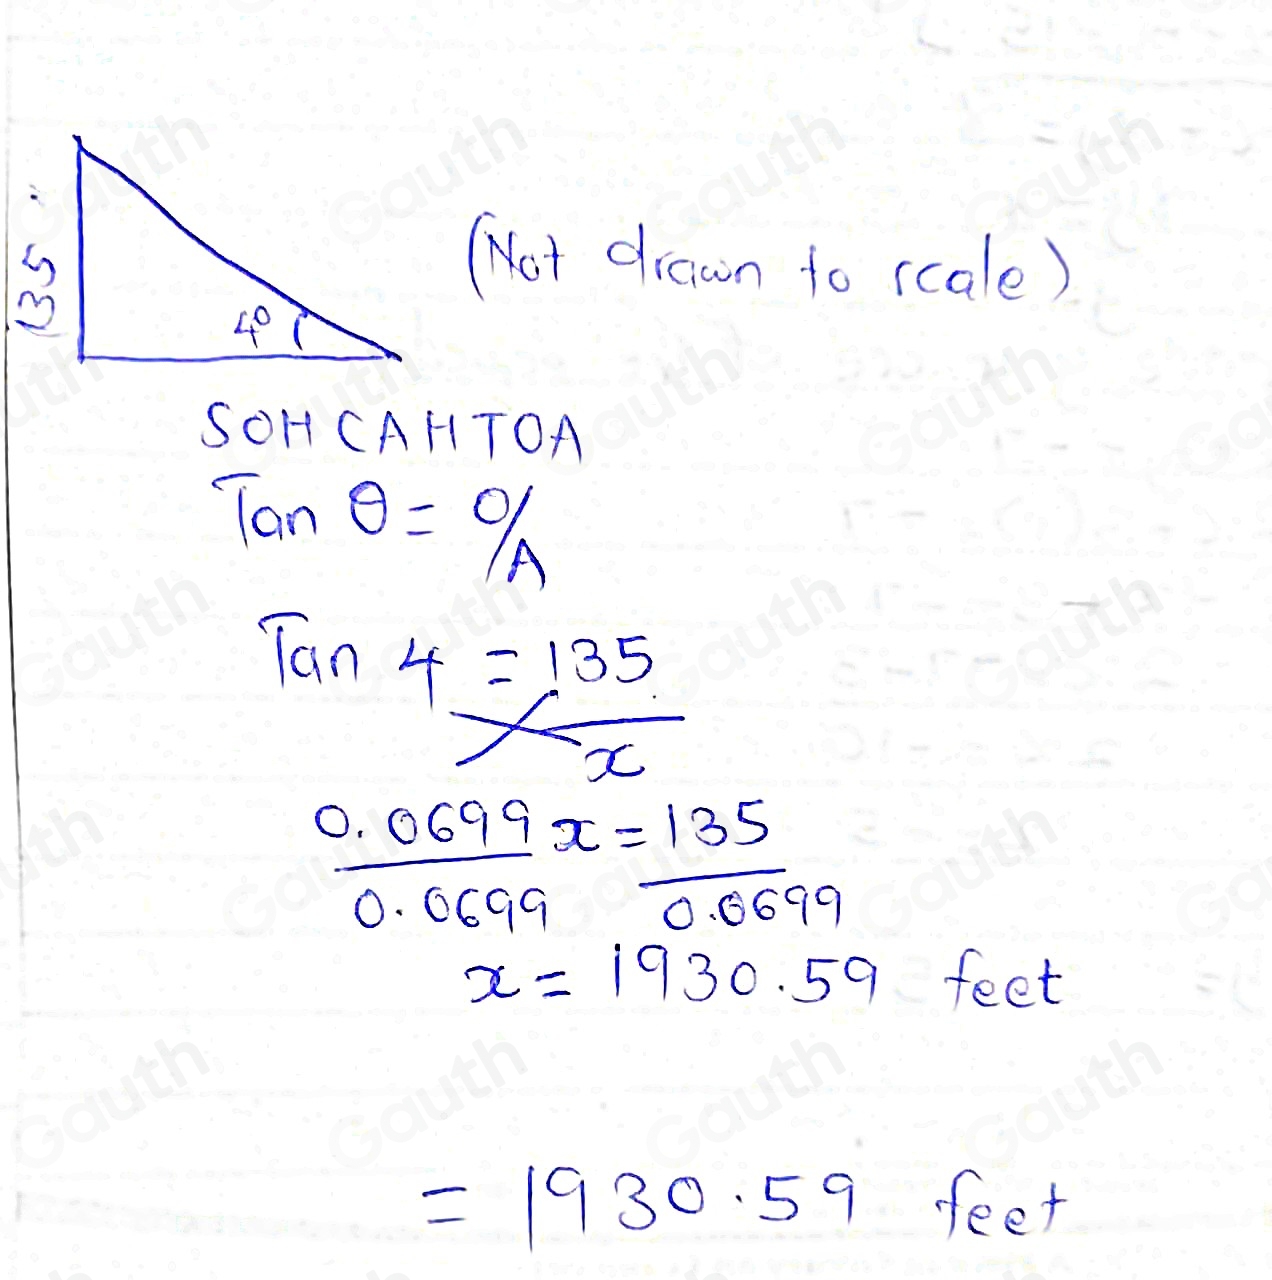 135
4°
(Not drawn to scale)
SOHCAHTOA
Tan θ = O/A
Tan 4 = 135
x
0.0699x = 135
0.0699 0.0699
x = 1930.59 feet
= 1930.59 feet
Gauth